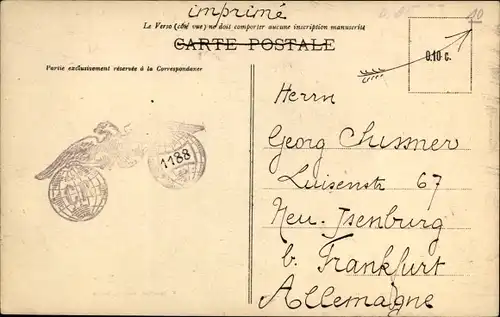 imprimé
Le Verso (côté vue) ne doit comporter aucune inscription manuscrite
CARTE POSTALE
Partie exclusivement réservée à la Correspondance
0.10 c.
10
1188
Herrn
Georg
Luisenstr 67
Neu-Isenburg
b. Frankfurt
Allemagne